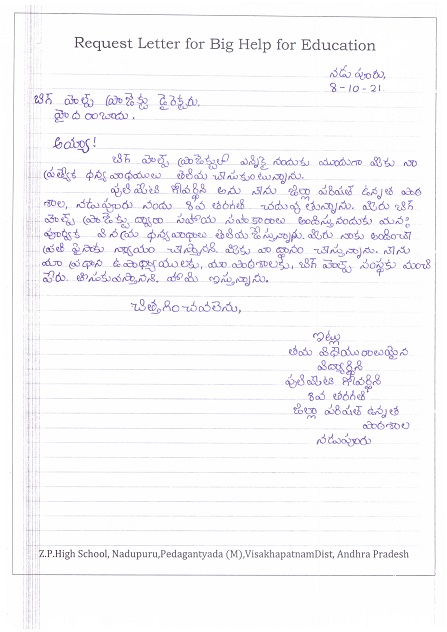 Request Letter for Big Help for Education
నడుపూరు,
8-10-21.
బిగ్ హెల్ప్ ప్రాజెక్టు డైరెక్టరు.
హైదరాబాదు.
అయ్యా!
బిగ్ హెల్ప్ ప్రాజెక్టులో ఎన్నికై నందుకు ముందుగా మీకు నా
ప్రత్యేక ధన్యవాదములు తెలియ చేసుకుంటున్నాను.
పులిమేటి గోవర్ధిని అను నేను జిల్లా పరిషత్ ఉన్నత పాఠ
శాల, నడుపూరు నందు 8వ తరగతి చదువుతున్నాను. మీరు బిగ్
హెల్ప్ ప్రాజెక్టు ద్వారా సహాయ సహకారాలు అందిస్తునందుకు మనః
పూర్వక వినయ ధన్యవాదాలు తెలియజేస్తున్నాను. మీరు నాకు అందించే
ప్రతి పైసాకు న్యాయం చేస్తానని మీకు వాగ్దానం చేస్తున్నాను. నేను
మా ప్రధాన ఉపాధ్యాయులకు, మా పాఠశాలకు, బిగ్ హెల్ప్ సంస్థకు మంచి
పేరు తీసుకువస్తానని హామీ ఇస్తున్నాను.
చిత్తగించవలెను,
ఇట్లు
తమ విధేయురాలయైన
విద్యార్థిని
పులిమేటి గోవర్ధిని
8వ తరగతి
జిల్లా పరిషత్ ఉన్నత
పాఠశాల
నడుపూరు
Z.P.High School, Nadupuru,Pedagantyada (M),VisakhapatnamDist, Andhra Pradesh